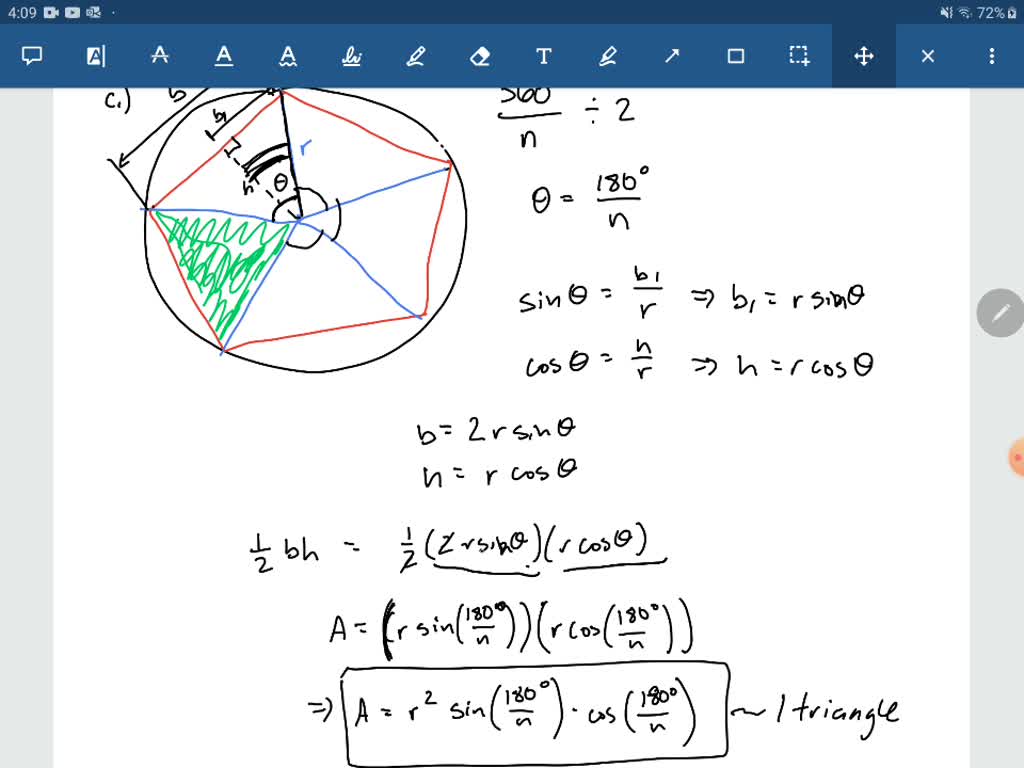 4:09
72%
A A A A T
c.)
b
b₁
r
h
θ
360/n ÷ 2
θ = 180°/n
sinθ = b₁/r ⇒ b₁ = r sinθ
cosθ = h/r ⇒ h = r cosθ
b = 2 r sinθ
h = r cosθ
1/2 bh = 1/2 (2 r sinθ)(r cosθ)
A = (r sin(180°/n))(r cos(180°/n))
⇒ A = r² sin(180°/n) · cos(180°/n) ~ 1 triangle